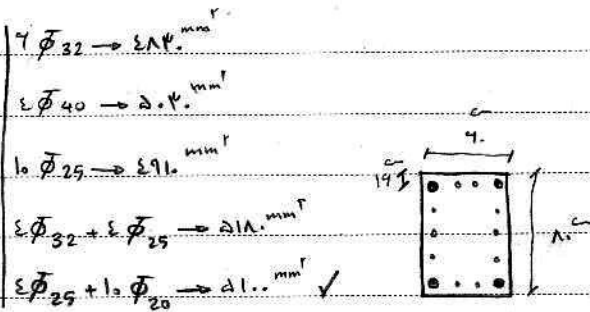 ۶ Φ32 → ۴۸۳۰ mm²
۴ Φ40 → ۵۰۳۰ mm²
۱۰ Φ25 → ۴۹۱۰ mm²
۴Φ32 + ۴Φ25 → ۵۱۸۰ mm²
۴Φ25 + ۱۰Φ20 → ۵۱۰۰ mm² ✓
۶۰ cm
۱۶ cm
۸۰ cm